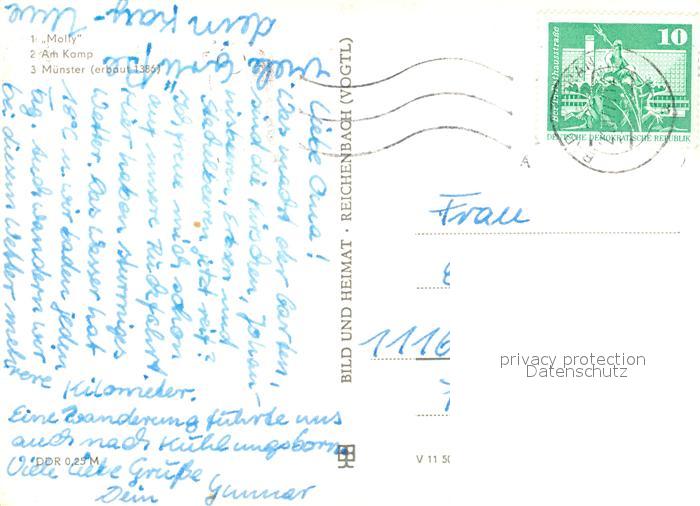 1 „Molly"
2 Am Kamp
3 Münster (erbaut 1386)
Liebe Oma!
Was macht der Garten,
sind die Kirschen, Johan-
nisbeeren, Erbsen und
Erdbeeren jetzt reif?
Ich freue mich schon
auf unsere Rückfahrt.
Wir haben stürmiges
Wetter. Das Wasser hat
18°C u. wir baden jeden
Tag. Auch wandern wir
bei diesem Wetter mehrere
Kilometer.
Eine Wanderung führte uns
auch nach Kühlungsborn.
Viele liebe Grüße
Dein Gunnar
Viele Grüße
dein Kay-Uwe
DDR 0,25 M
BILD UND HEIMAT · REICHENBACH (VOGTL)
10
DEUTSCHE DEMOKRATISCHE REPUBLIK
A
Frau
1116
V 11 50
privacy protection
Datenschutz